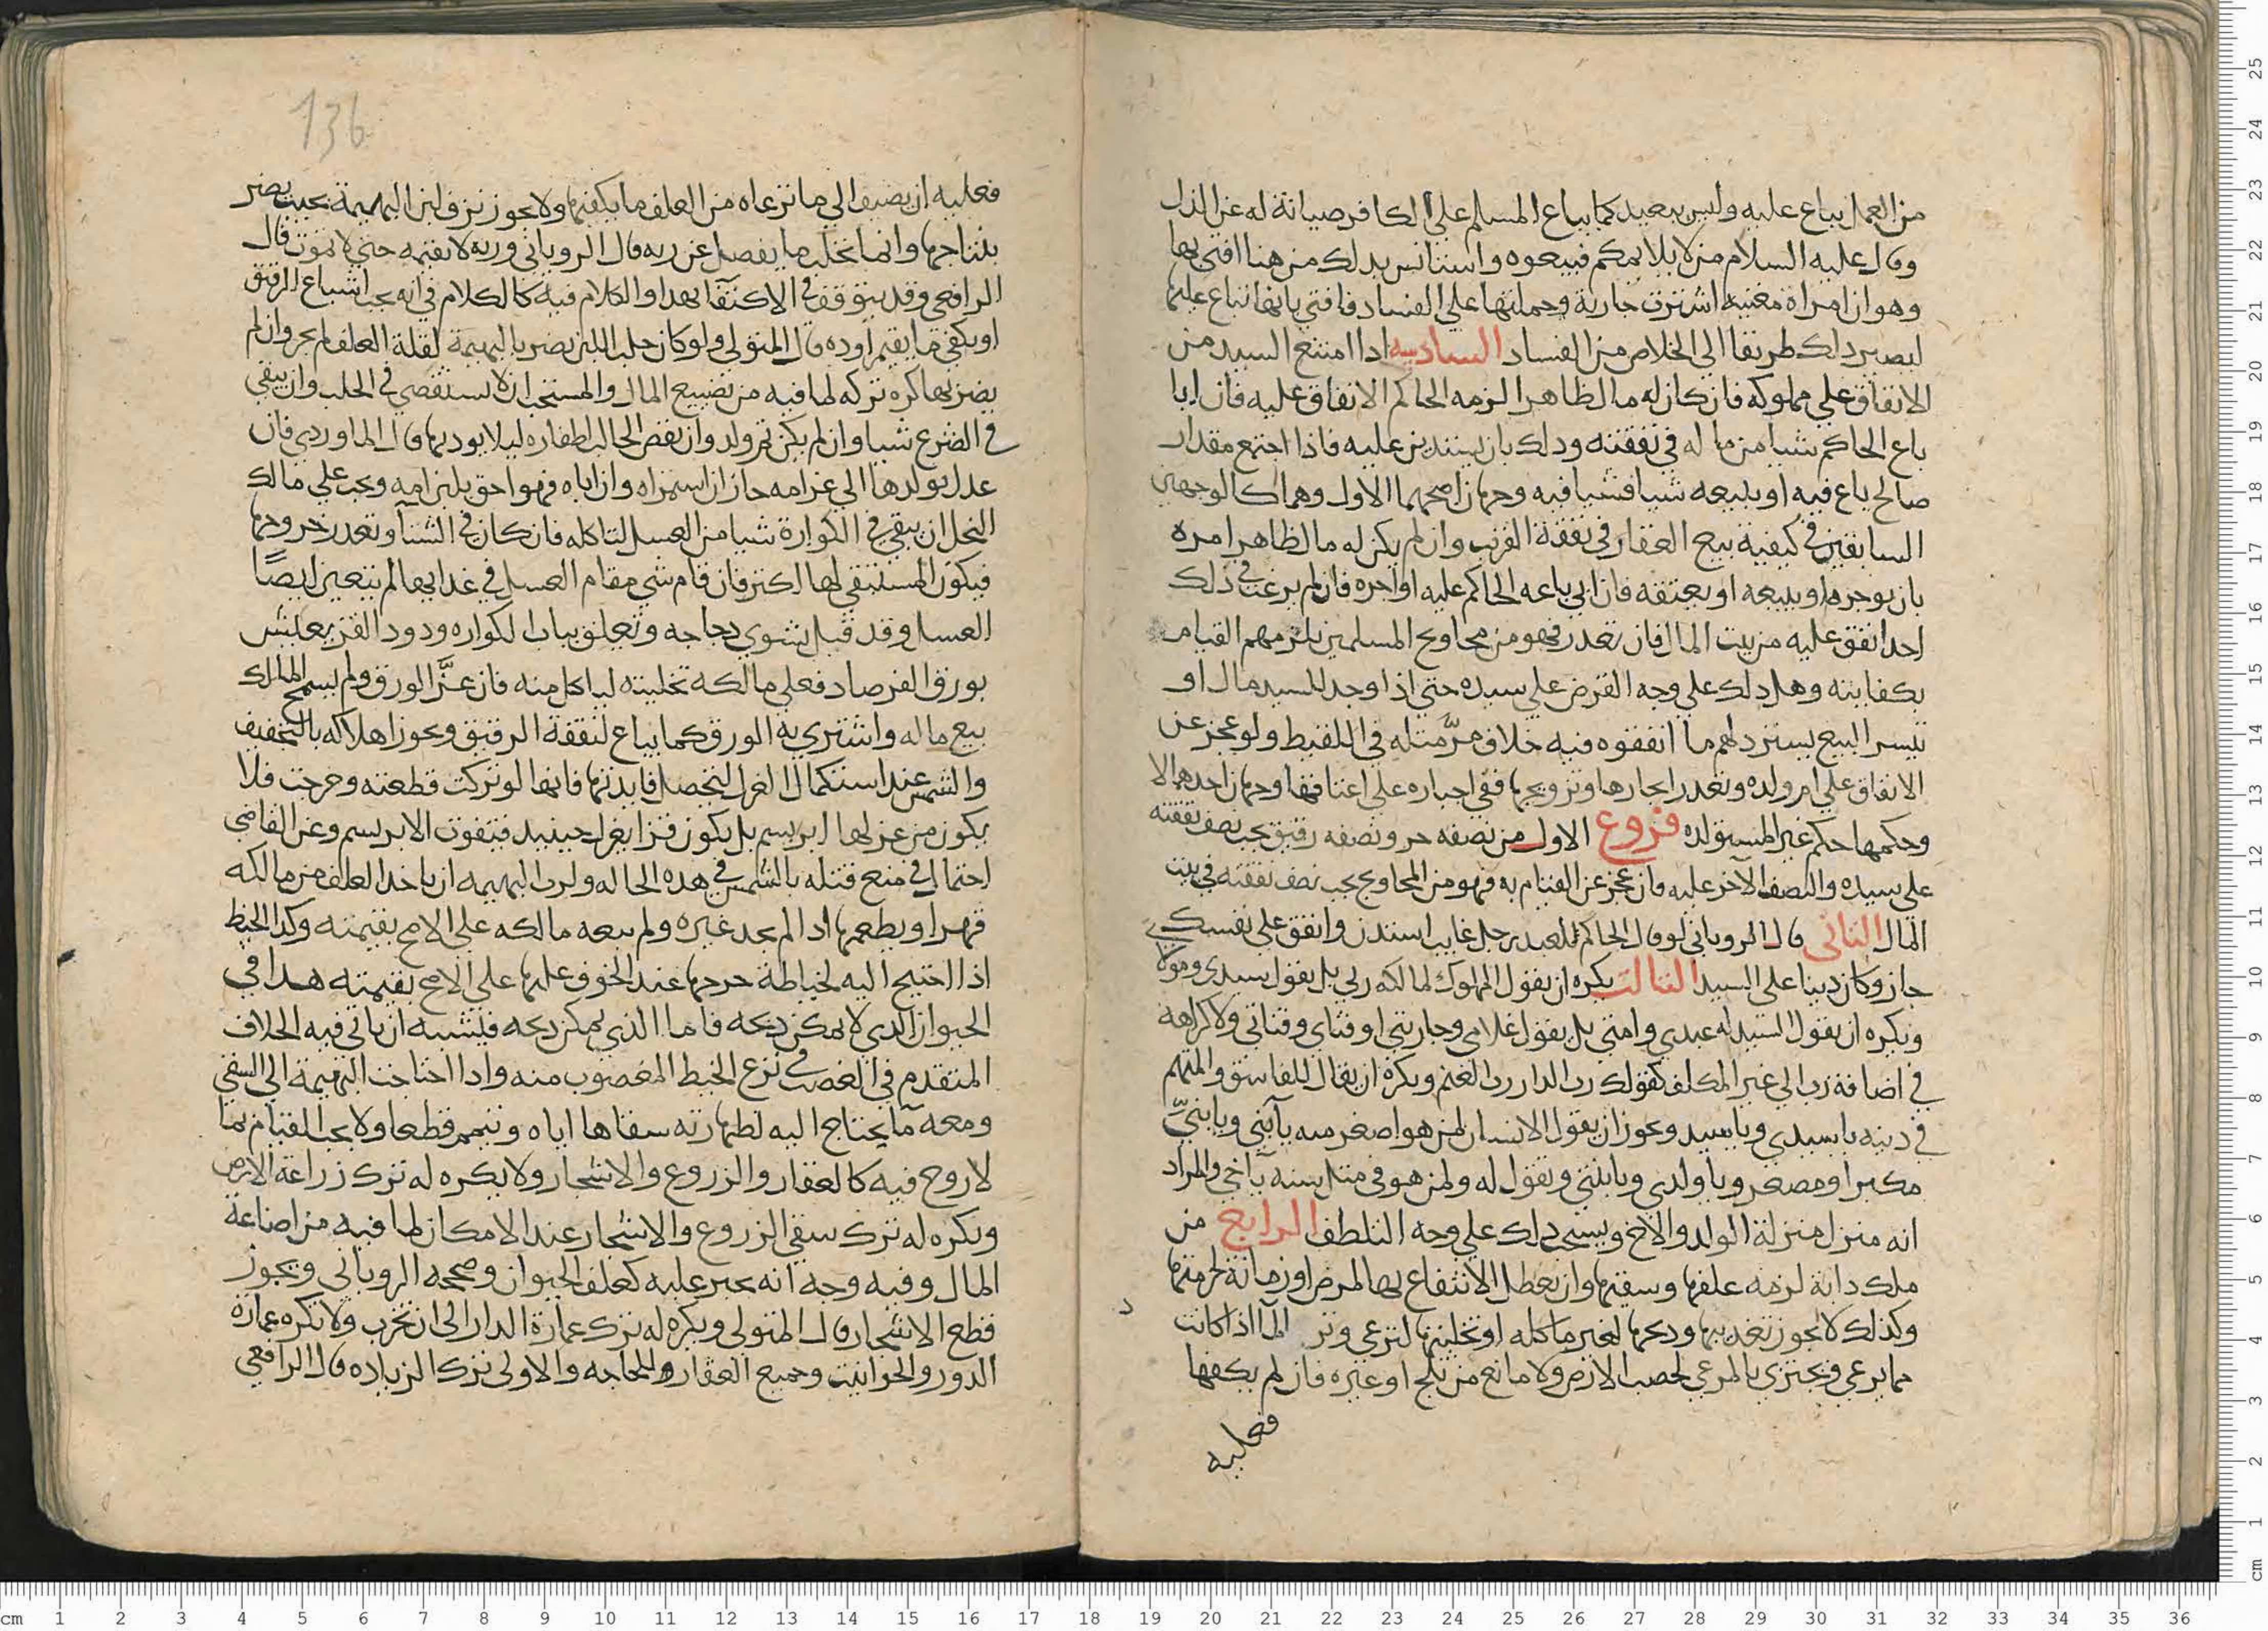 من العمل يباع عليه وليس ببعيد كما يباع المسلم علي الكافر صيانة له عن الذل
وقال عليه السلام من لا يلايمكم فبيعوه واستانس بدلك من هنا افتي بها
وهو ان امراة مغنية اشترت جارية وحملتها علي الفساد فافتي بانها تباع عليها
ليصير دلك طريقا الي الخلاص من الفساد السادسه ادا امتنع السيد من
الانفاق علي مملوكه فان كان له مال ظاهر الزمه الحاكم الانفاق عليه فان ابا
باع الحاكم شيا من ماله في نفقته ودلك بان يستدين عليه فاذا اجتمع مقدار
صالح باع فيه او يبيعه شيا فشيا فيه وجهان اصحهما الاول وهما كالوجهين
السابقين في كيفية بيع العقار في نفقة القريب وان لم يكن له مال ظاهر امره
بان يوجره او يبيعه او يعتقه فان ابي باعه الحاكم عليه او اجره فان لم يرغب في ذلك
احد انفق عليه من بيت المال فان تعدر فهو من محاويج المسلمين يلزمهم القيام
بكفايته وهل دلك علي وجه القرض علي سيده حتي اذا وجد للسيد مال او
تيسر البيع يسترد لهم ما انفقوه فيه خلاف مرّ مثله في اللقيط ولو عجز عن
الانفاق علي ام ولده وتعدر ايجارها وتزويجها ففي اجباره علي اعتاقها وجهان احدهما لا
وحكمها حكم غير المستولده فروع الاول من نصفه حر ونصفه رقيق يجب نصف نفقته
علي سيده والنصف الآخر عليه فان عجز عن القيام به فهو من المحاويج يجب نصف نفقته في بيت
المال الثاني قال الروياني لو قال الحاكم للعبد رجل غايب استدن وانفق علي نفسك
جاز وكان دينا علي السيد الثالث يكره ان يقول المملوك لمالكه ربي بل يقول سيدي ومولا
ويكره ان يقول السيد له عبدي وامتي بل يقول غلامي وجاريتي او فتاي وفتاتي ولا كراهه
في اضافة رب الي غير المكلف كقولك رب الدار رب الغنم ويكره ان يقال للفاسق والمتهم
في دينه يا سيدي ويا سيد ويجوز ان يقول الانسان لمن هو اصغر منه يا ابني ويا بنيّ
مكبرا ومصغر ويا ولدي ويا بنتي ويقول له ولمن هو في مثل سنه يا اخي والمراد
انه منزل منزلة الولد والاخ ويستحب دلك علي وجه التلطف الرابع من
ملك دابة لزمه علفها وسقيها وان تعطل الانتفاع بها لمرض او زمانة لحرمتها
وكذلك لا يجوز تعذيبها ودبحها لغير ماكله او تخليتها لترعي وترد الما اذا كانت
مما يرعي ويجتزي بالمرعي لخصب الارض ولا مانع من ثلج او غيره فان لم يكفها
فعليه
136
فعليه ان يضيف الي ما ترعاه من العلف ما يكفيها ولا يجوز نزف لبن البهيمة بحيث يضر
بنتاجها وانما تحلب ما يفضل عن ريه قال الروياني وريه لا يقيمه حتي لا يموت قال
الرافعي وقد يتوقف في الاكتفا بهدا والكلام فيه كالكلام في انه يجب اشباع الرقيق
او يكفي ما يقيم اوده قال المتولي ولو كان حلب اللبن يضر بالبهيمة لقلة العلف لم يجز وان لم
يضر بها كره تركه لما فيه من تضييع المال والمستحب ان لا يستقصي في الحلب وان يبقي
في الضرع شيا وان لم يكن ثم ولد وان يقص الحالب اظفاره ليلا يوديها قال الماوردي فان
عدل بولدها الي غير امه جاز ان استمراه وان اباه فهو احق بلبن امه ويجب علي مالك
النحل ان يبقي في الكوارة شيا من العسل لتاكله فان كان في الشتا وتعدر خروجها
فيكون المستبقي لها اكثر فان قام شي مقام العسل في غدايها لم يتعين ايضًا
العسل وقد قيل يشوي دجاجه وتعلق بباب الكواره ودود القز يعيش
بورق الفرصاد فعلي مالكه تخليته لياكل منه فان عزَّ الورق ولم يسمح المالك
بيع ماله واشتري به الورق كما يباع لنفقة الرقيق ويجوز اهلاكه بالتخفيف
والشمس عند استكمال الغزل لتحصل فايدتها فانها لو تركت قطعته وخرجت فلا
يكون من غزلها ابريسم بل يكون قزا يغزل حينيد فيفوت الابريسم وعن القاضي
احتمال في منع قتله بالشمس في هده الحاله ولرب البهيمه ان ياخد العلف من مالكه
قهرا ويطعمها ادا لم يجد غيره ولم يبعه مالكه علي الاصح بقيمته وكدا الخيط
اذا احتيج اليه لخياطة جرحها عند الخوف عليها علي الاصح بقيمته هدا في
الحيوان الدي لا يمكن دبحه فاما الذي يمكن دبحه فيشبه ان ياتي فيه الخلاف
المتقدم في الغصب في نزع الخيط المغصوب منه وادا احتاجت البهيمة الي السقي
ومعه ما يحتاج اليه لطهارته سقاها اياه وتيمم قطعا ولا يجب القيام بما
لا روح فيه كالعقار والزروع والاشجار ولا يكره له ترك زراعة الارض
ويكره له ترك سقي الزروع والاشجار عند الامكان لما فيه من اضاعة
المال وفيه وجه انه يجبر عليه كعلف الحيوان وصححه الروياني ويجوز
قطع الاشجار قال المتولي ويكره له ترك عمارة الدار الي ان تخرب ولا تكره عمارة
الدور والحوانيت وجميع العقار وللحاجه والاولي ترك الزياده قال الرافعي